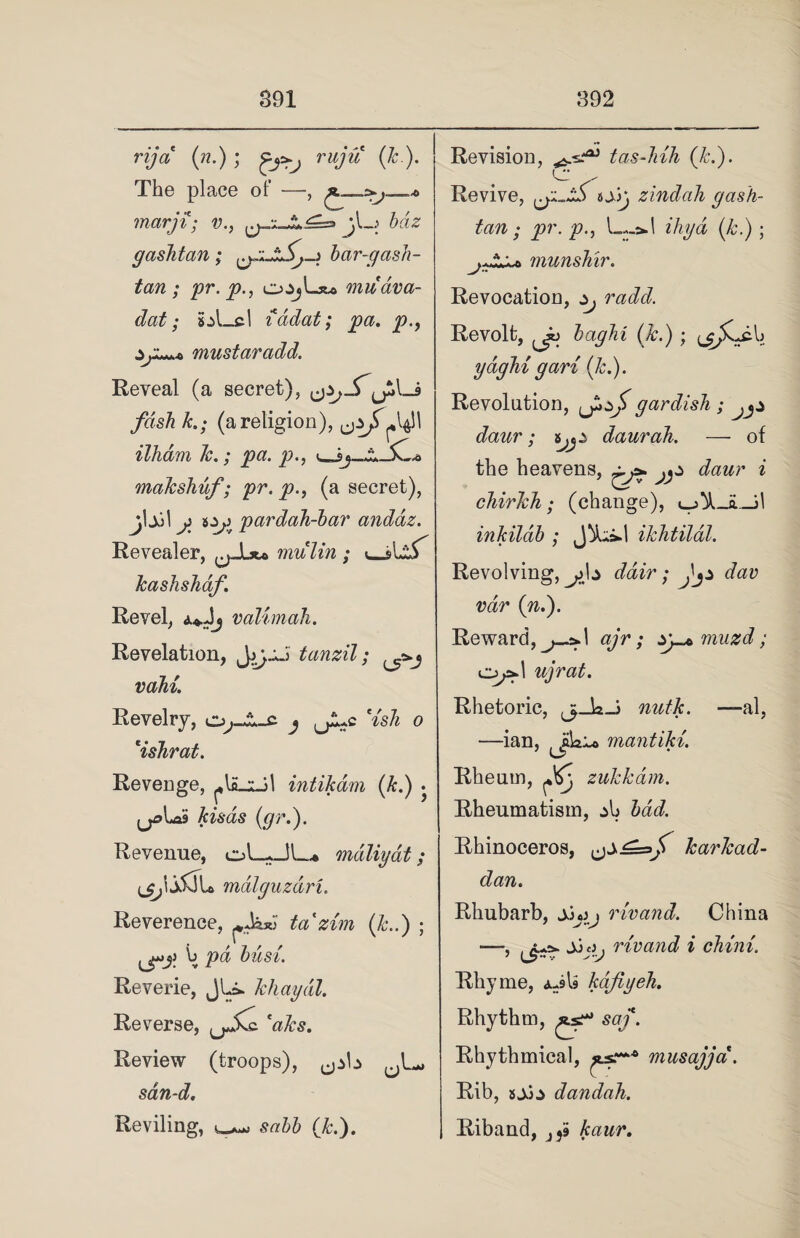 391
392
rija' (n.); رجوع rujú' (k.).
The place of —, مرجع
marjí'; v., باز گشتن báz
gashtan; برگشتن bar-gash-
tan; pr. p., معاودت mu'áva-
dat; اعادت i'ádat; pa. p.,
مسترد mustaradd.
Reveal (a secret), فاش کردن
fásh k.; (a religion), الهام کردن
ilhám k.; pa. p., مکشوف
makshúf; pr. p., (a secret),
پرده بر انداز pardah-bar andáz.
Revealer, معلن mu'lin; کشاف
kashsháf.
Revel, ولیمه valímah.
Revelation, تنزیل tanzil; وحی
vahí.
Revelry, عیش و عشرت 'ísh o
'ishrat.
Revenge, انتقام intikám (k.);
قصاص kisás (gr.).
Revenue, مالیات máliyát;
مالگذاری málguzárí.
Reverence, تعظیم ta'zím (k..);
پا بوسی pá búsí.
Reverie, خیال khayál.
Reverse, عکس 'aks.
Review (troops), سان دادن
sán-d.
Reviling, سب sabb (k.).
Revision, تصحیح tas-híh (k.).
Revive, زنده گشتن zindah gash-
tan; pr. p., احیا ihyá (k.);
منشر munshír.
Revocation, رد radd.
Revolt, بغی baghí (k.); یاغیگری
yághí garí (k.).
Revolution, گردش gardish; دور
daur; دوره daurah. — of
the heavens, دور چرخ daur i
chirkh; (change), انقلاب
inkiláb; اختلال ikhtilál.
Revolving, دایر dáir; دوار dav
vár (n.).
Reward, اجر ajr; مزد muzd;
اجرت ujrat.
Rhetoric, نطق nutk. —al,
—ian, منطقی mantiki.
Rheum, زکام zukkám.
Rheumatism, باد bád.
Rhinoceros, کرکدن karkad-
dan.
Rhubarb, ریوند rívand. China
—, ریوند چینی rívand i chíní.
Rhyme, قافیه káfiyeh.
Rhythm, سجع saj'.
Rhythmical, مسجع musajja'.
Rib, دنده dandah.
Riband, قور kaur.